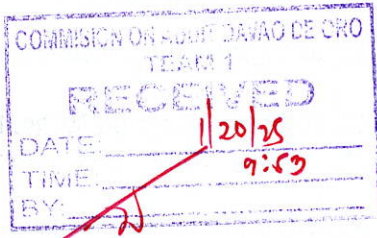 COMMISION ON AUDIT DAVAO DE ORO
TEAM 1
RECEIVED
DATE: 1/20/25
TIME: 9:53
BY: